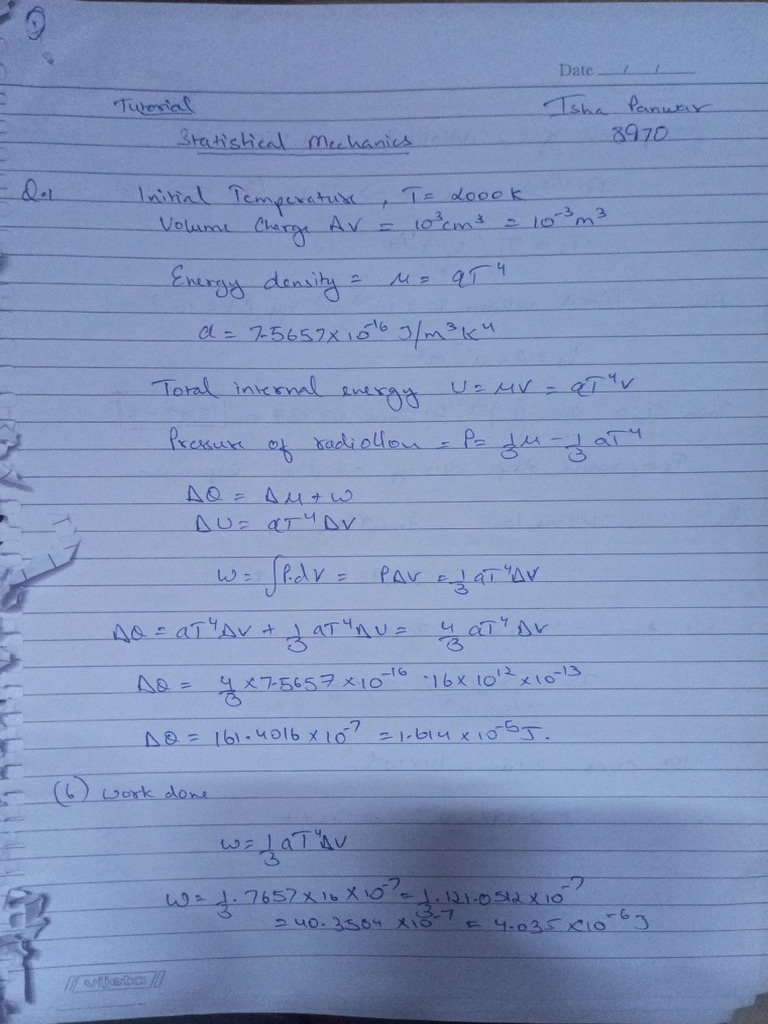 1
Date __/__/__
Tutorial
Isha Panwar
Statistical Mechanics
8970
Q.1 Initial Temperature, T = 2000K
Volume Charge ΔV = 10³cm³ = 10⁻³m³
Energy density = u = aT⁴
a = 7.5657×10⁻¹⁶ J/m³K⁴
Total internal energy U = uV = aT⁴V
Pressure of radiation = P = 1/3 u - 1/3 aT⁴
ΔQ = Δu + W
ΔU = aT⁴ΔV
W = ∫P.dV = PΔV = 1/3 aT⁴ΔV
ΔQ = aT⁴ΔV + 1/3 aT⁴ΔU = 4/3 aT⁴ΔV
ΔQ = 4/3 × 7.5657×10⁻¹⁶ ·16×10¹² ×10⁻¹³
ΔQ = 161.4016×10⁻⁷ = 1.614×10⁻⁵J.
(b) Work done
W = 1/3 aT⁴ΔV
W = 1/3 · 7657×16×10⁻⁷ = 1/3 · 121.0512×10⁻⁷
= 40.3504×10⁻⁷ = 4.035×10⁻⁶J
vijeta